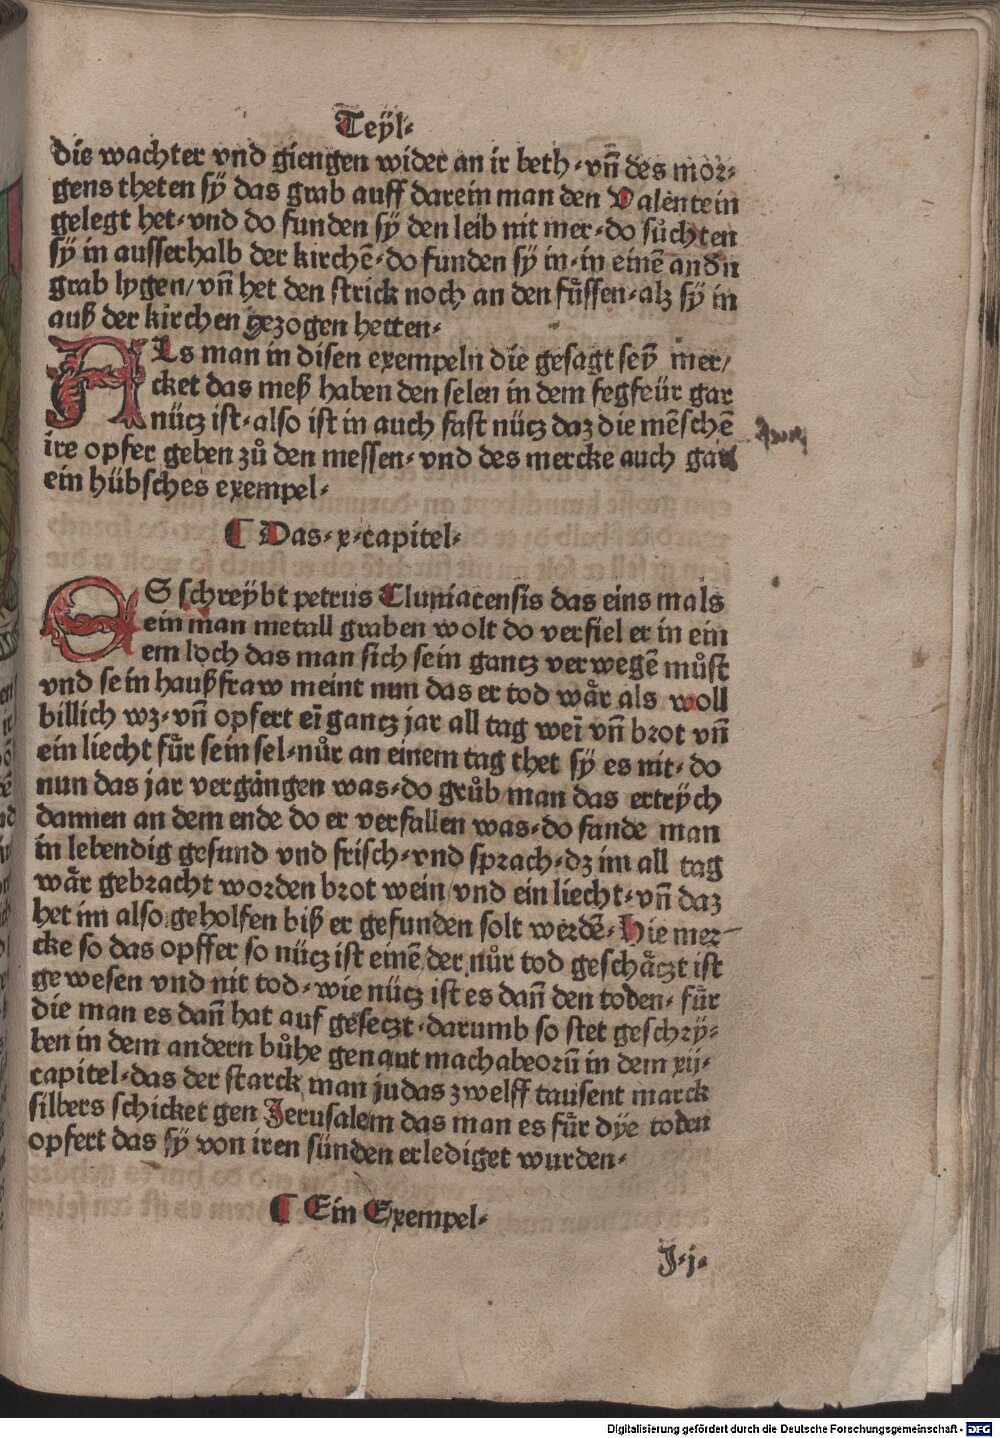 Teÿl·
die wachter vnd giengen wider an ir beth·vñ des mor⸗
gens theten sÿ das grab auff darein man den Valentein
gelegt het·vnd do funden sÿ den leib nit mer·do sůchten
sÿ in ausserhalb der kirchē·do funden sÿ in·in einē andn
grab lygen/vñ het den strick noch an den fu̎ssen·alz sÿ in
auß der kirchen gezogen hetten·
ALs man in disen exempeln die gesagt seÿ mer/
cket das meß haben den selen in dem fegfeür gar
nücz ist·also ist in auch fast nücz daz die mēschē
ire opfer geben zů den messen·vnd des mercke auch gar
ein hübsches exempel·
¶ Das·x·capitel·
ES schreÿbt petrus Cluniacensis das eins mals
ein man metall graben wolt do verfiel er in ein
em loch das man sich sein gantz verwegē můst
vnd sein haußfraw meint nun das er tod wär als woll
billich wz·vñ opfert eī gantz jar all tag weī vñ brot vñ
ein liecht für sein sel·nůr an einem tag thet sÿ es nit·do
nun das jar vergangen was·do grůb man das ertrÿch
dannen an dem ende do er verfallen was·do fande man
in lebendig gesund vnd frisch·vnd sprach·dz im all tag
wär gebracht worden brot wein vnd ein liecht·vñ daz
het im also geholfen biß er gefunden solt werdē·Hie mer
cke so das opffer so nücz ist einē der nůr tod geschäczt ist
gewesen vnd nit tod·wie nücz ist es dañ den toden·für
die man es dañ hat auf geseczt·darumb so stet geschrÿ⸗
ben in dem andern bůhe genant machabeorū in dem xij·
capitel·das der starck man judas zwelff tausent marck
silbers schicket gen Jerusalem das man es für dÿe toden
opfert das sÿ von iren sünden erlediget wurden·
¶ Ein Exempel·
J·j·
Digitalisierung gefördert durch die Deutsche Forschungsgemeinschaft - DFG